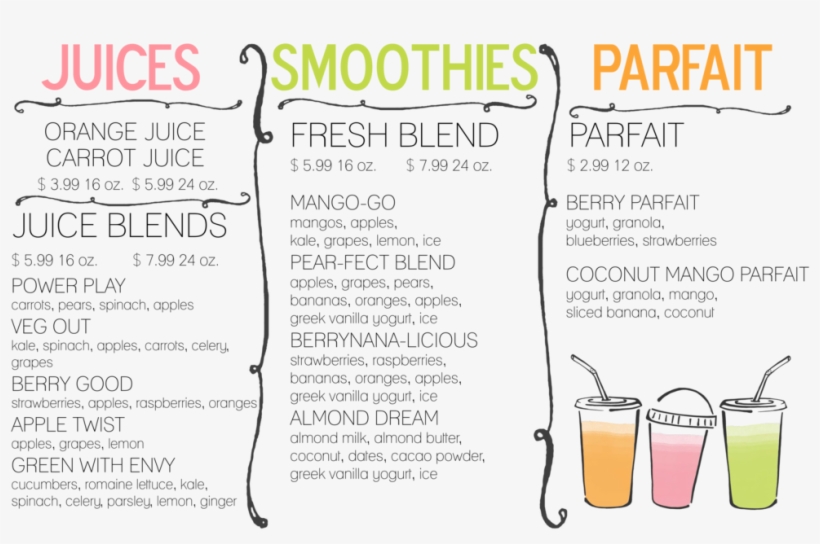 JUICES
ORANGE JUICE
CARROT JUICE
$ 3.99 16 oz. $ 5.99 24 oz.
JUICE BLENDS
$ 5.99 16 oz. $ 7.99 24 oz.
POWER PLAY
carrots, pears, spinach, apples
VEG OUT
kale, spinach, apples, carrots, celery,
grapes
BERRY GOOD
strawberries, apples, raspberries, oranges
APPLE TWIST
apples, grapes, lemon
GREEN WITH ENVY
cucumbers, romaine lettuce, kale,
spinach, celery, parsley, lemon, ginger
SMOOTHIES
FRESH BLEND
$ 5.99 16 oz. $ 7.99 24 oz.
MANGO-GO
mangos, apples,
kale, grapes, lemon, ice
PEAR-FECT BLEND
apples, grapes, pears,
bananas, oranges, apples,
greek vanilla yogurt, ice
BERRYNANA-LICIOUS
strawberries, raspberries,
bananas, oranges, apples,
greek vanilla yogurt, ice
ALMOND DREAM
almond milk, almond butter,
coconut, dates, cacao powder,
greek vanilla yogurt, ice
PARFAIT
PARFAIT
$ 2.99 12 oz.
BERRY PARFAIT
yogurt, granola,
blueberries, strawberries
COCONUT MANGO PARFAIT
yogurt, granola, mango,
sliced banana, coconut